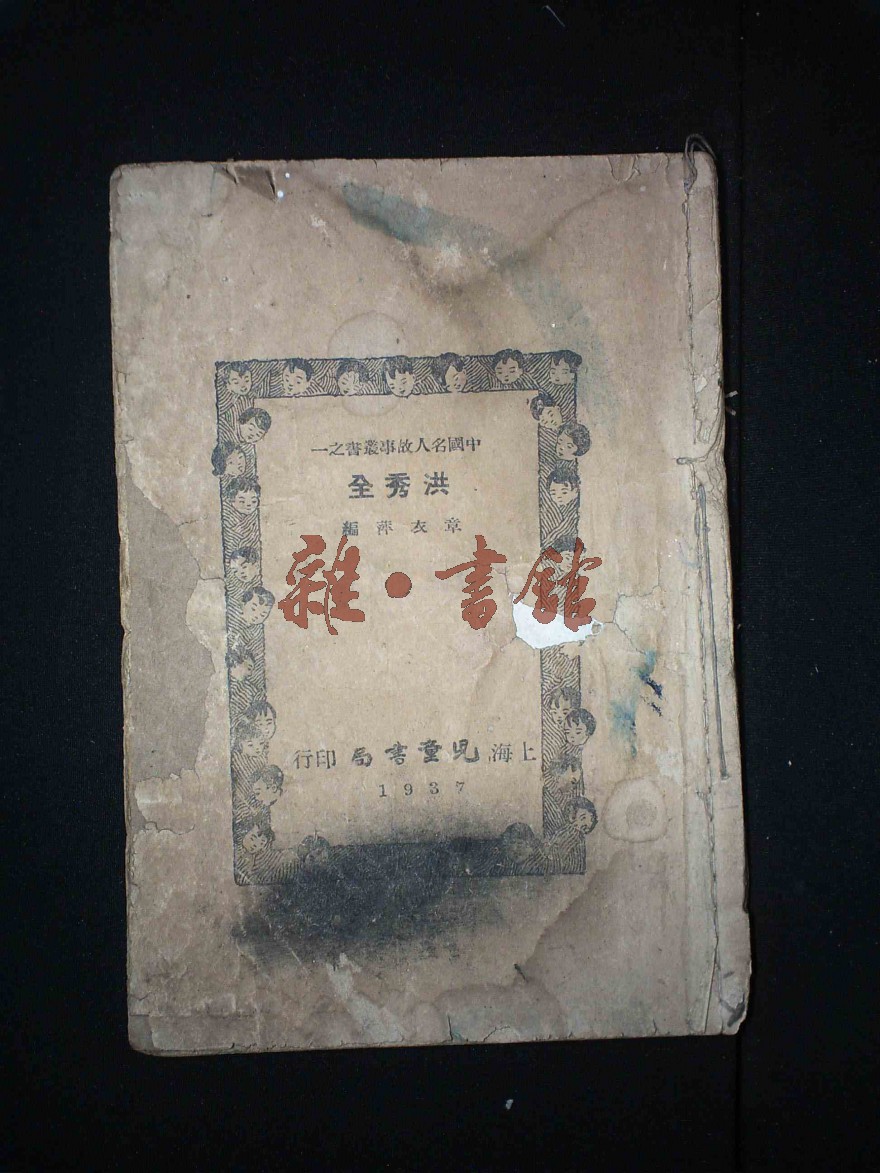 中國名人故事叢書之一
洪秀全
章衣萍編
雜·書館
上海兒童書局印行
1937